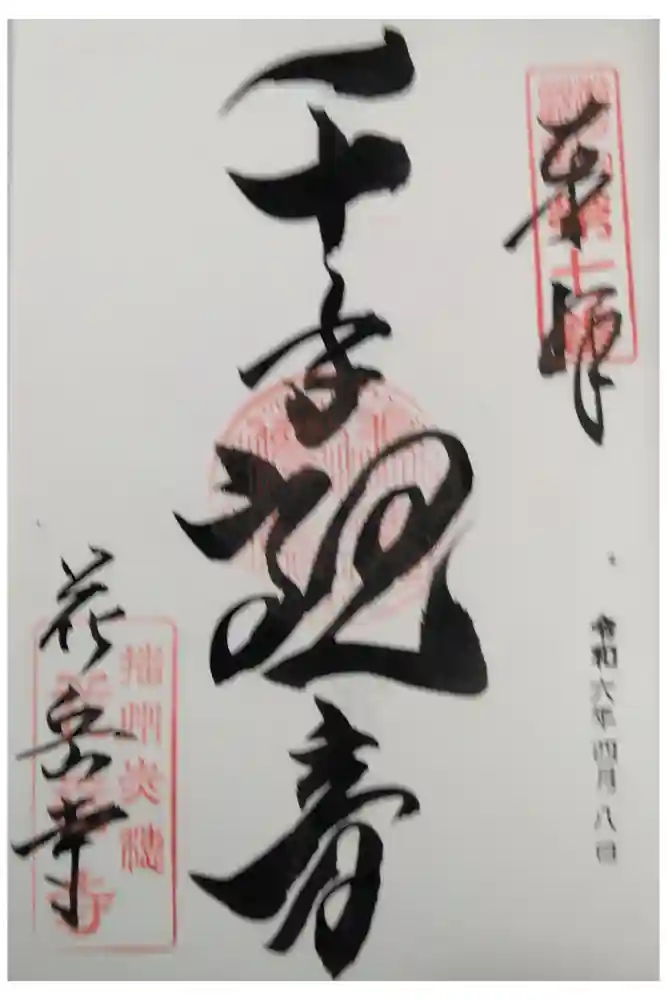 奉拝
千手観音
令和六年四月八日
花岳寺
播州赤穂